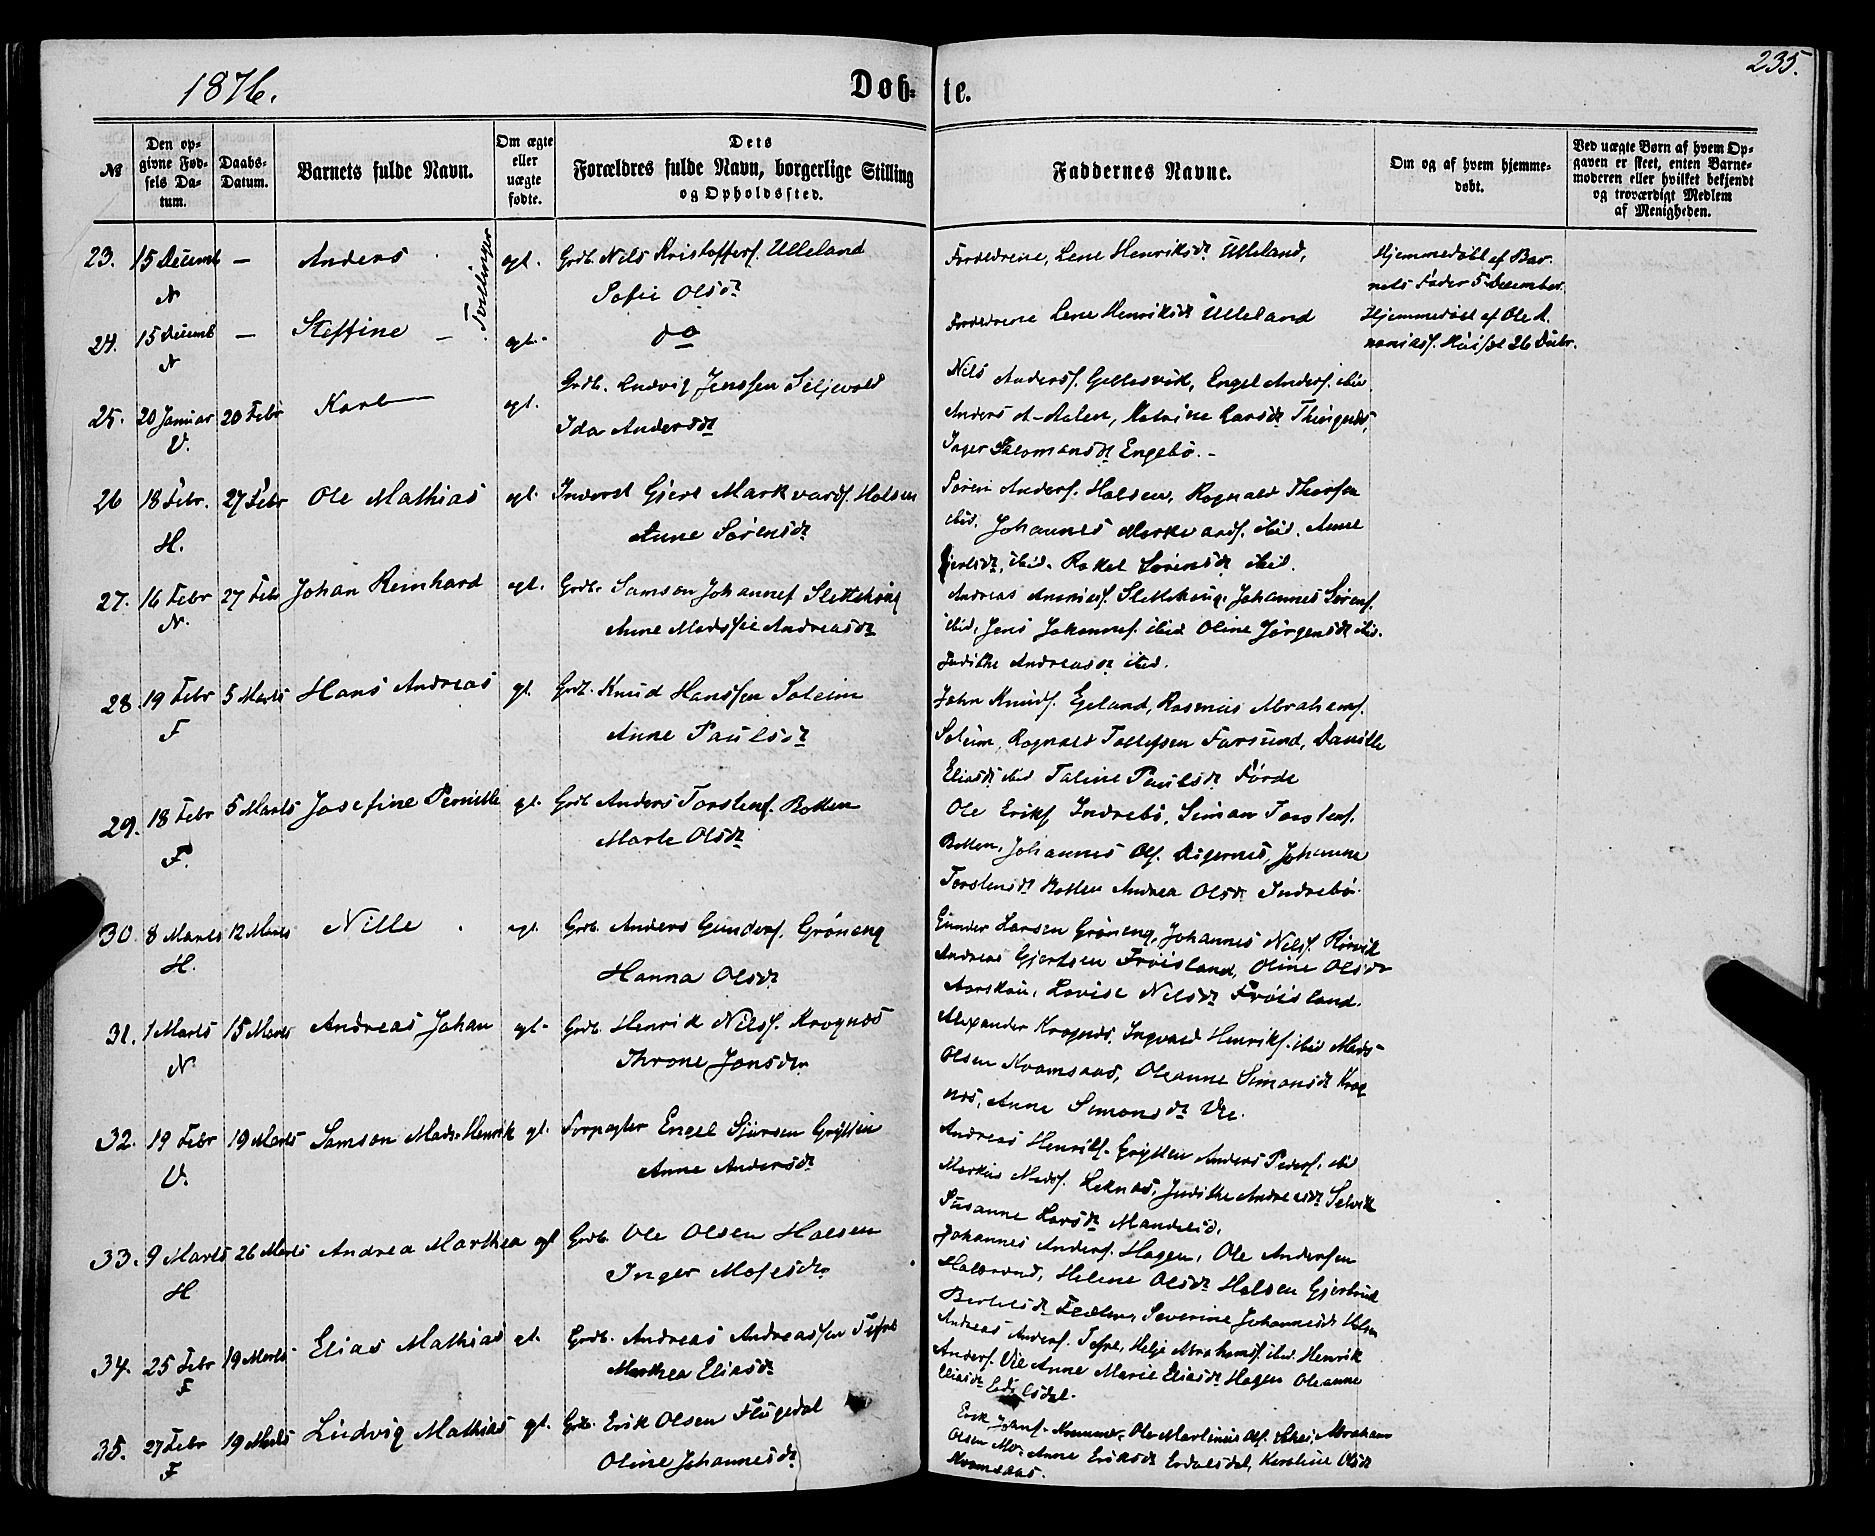 1876.
Døb-
te.
235.
№
Den op-
givne Fød-
sels Da-
tum.
Daabs-
Datum.
Barnets fulde Navn.
Om ægte
eller
uægte
fødte.
Dets
Forældres fulde Navn, borgerlige Stilling
og Opholdssted.
Faddernes Navne.
Om og af hvem hjemme-
døbt.
Ved uægte Børn af hvem Op-
gaven er skeet, enten Barne-
moderen eller hvilket bekjendt
og troværdigt Medlem
af Menigheden.
23. 15 Decemb — Anders Tvillinger egt. Grdb. Nils Kristoffers. Ulleland
N Sofie Olsdr
Forældrene, Lene Henriksdr Ulleland,
Hjemmedøbt af Bar-
nets Fader 5 December.
24. 15 Decemb — Steffine — egt. do
N
Forældrene Lene Henriksdr Ulleland
Hjemmedøbt af Ole A.
26 Decbr.
25. 20 Januar 20 Febr Karl egt. Grdb. Ludvig Jenssen Seljevold
V. Ida Andersdr
Nils Anders. Engel Anders. ibid
Anders Katrine Larsdr
Inger Salomonsdr Engebø.
26 18 Febr. 27 Febr Ole Mathias egt. Inderst Gjert Markvards. Halsen
H. Anne Sørensdr
Søren Anders. Halsen, Rognald Thorsen
ibid. Johannes Markvards. ibid. Anne
ibid. Rakel Sørensdr ibid.
27. 16 Febr 27 Febr Johan Reinhard egt. Grdb. Samson Johannes. Slettehaug
N. Anne Madssie Andreasdr
Andreas Ananias. Slettehaug, Johannes Sørens.
ibid, Jens Johannes. ibid Oline Jørgensdr ibid.
Judithe Andreasdr ibid.
28. 19 Febr 5 Marts Hans Andreas egt. Grdb. Knud Hanssen Soleim
F Anne Paulsdr
John Knuds. Egeland, Rasmus Abrahams.
Soleim, Rognald Tollefsen Farsund, Danielle
Eliasdr ibid Taline Paulsdr Førde
29. 18 Febr 5 Marts Josefine Pernille egt. Grdb Anders Torstens. Botten
F. Marte Olsdr
Ole Eriks Indrebø, Simon Torstens.
Botten, Johannes Ols. Digernes, Johanne
Torstensdr Botten Andrea Olsdr Indrebø.
30. 8 Marts 12 Marts Nille egt. Grdb. Anders Gunders. Grøneng
H. Hanna Olsdr
Gunder Larsen Grøneng, Johannes Nils. Rørvik
Andreas Gjertsen Frøisland, Oline Olsdr
Lovise Nilsdr Frøisland.
31. 1 Marts 15 Marts Andreas Johan egt. Grdb. Henrik Nilss. Krognes
N Throne Jonsdr
Alexander Krognes, Ingvald Henriks. ibid Mads
Olsen Kvamsaas, Oleanne Simonsdr Krog
nes, Anne Simonsdr Vie.
32. 19 Febr 19 Marts Samson Mads Henrik egt. Forpagter Engel Sjursen Grytten
V. Anne Andersdr
Andreas Henriks. Grytten Anders Peders. ibid
Markus Mads. Leknes, Judithe Andreasdr Selvik
Susanne Larsdr
33. 9 Marts 26 Marts Andrea Marthea egt Grdb. Ole Olsen Halsen
H Inger Mosesdr
Johannes Anders. Hagen, Ole Andersen
Halbrend, Helene Olsdr Halsen Gjertrud
Bertelsdr Severine Johannesdr Halsen
34. 25 Febr 19 Marts Elias Mathias egt. Grdb. Andreas Andreassen Tefre
F Marthea Eliasdr
Andreas Anders. Tefre, Helje Abrahams. ibid. Henrik
Anders. Vie Anne Marie Eliasdr Hagen Oleanne
Eliasdr
35. 27 Febr 19 Marts Ludvig Mathias egt. Grdb. Erik Olsen Flugedal
F Oline Johannesdr
Erik Ole Martinus Ols. Abraham
Olsen Mo, Anne Eriksdr Erdalsdal, Karoline Olsdr
Kvamsaas.